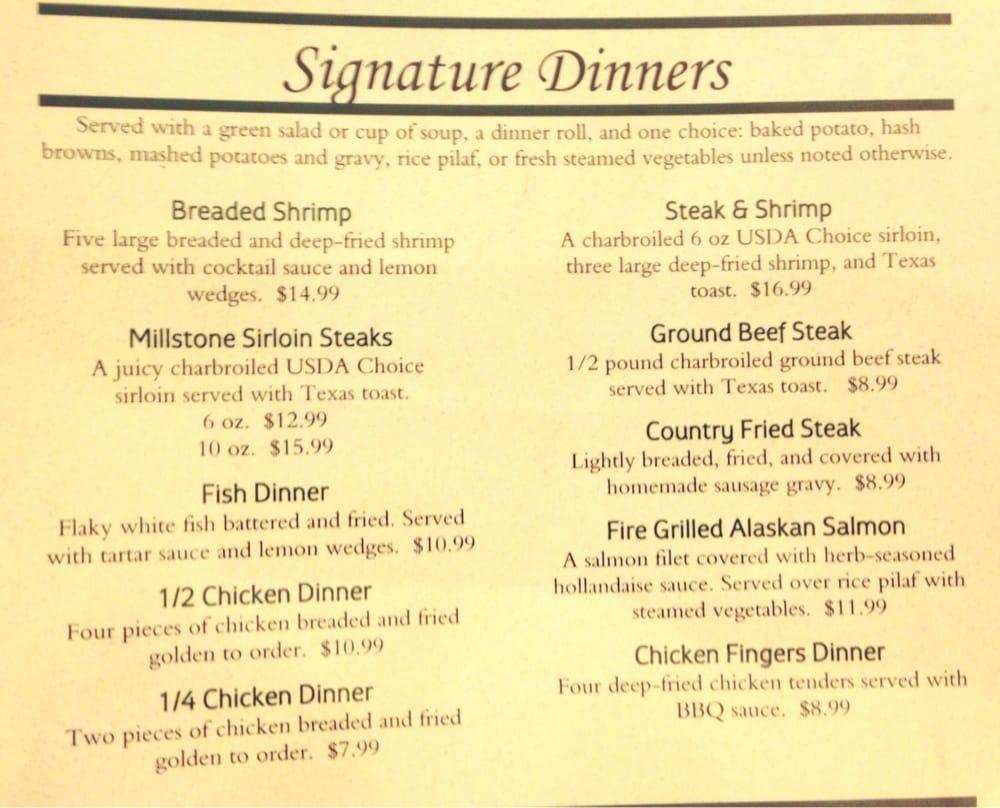 Signature Dinners
Served with a green salad or cup of soup, a dinner roll, and one choice: baked potato, hash
browns, mashed potatoes and gravy, rice pilaf, or fresh steamed vegetables unless noted otherwise.
Breaded Shrimp
Five large breaded and deep-fried shrimp
served with cocktail sauce and lemon
wedges. $14.99
Millstone Sirloin Steaks
A juicy charbroiled USDA Choice
sirloin served with Texas toast.
6 oz. $12.99
10 oz. $15.99
Fish Dinner
Flaky white fish battered and fried. Served
with tartar sauce and lemon wedges. $10.99
1/2 Chicken Dinner
Four pieces of chicken breaded and fried
golden to order. $10.99
1/4 Chicken Dinner
Two pieces of chicken breaded and fried
golden to order. $7.99
Steak & Shrimp
A charbroiled 6 oz USDA Choice sirloin,
three large deep-fried shrimp, and Texas
toast. $16.99
Ground Beef Steak
1/2 pound charbroiled ground beef steak
served with Texas toast. $8.99
Country Fried Steak
Lightly breaded, fried, and covered with
homemade sausage gravy. $8.99
Fire Grilled Alaskan Salmon
A salmon filet covered with herb-seasoned
hollandaise sauce. Served over rice pilaf with
steamed vegetables. $11.99
Chicken Fingers Dinner
Four deep-fried chicken tenders served with
BBQ sauce. $8.99